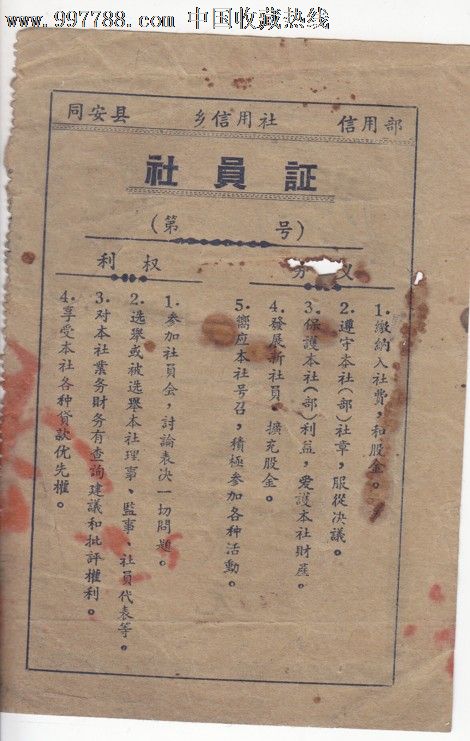 www.997788.com 中国收藏热线
同安县 乡信用社 信用部
社员証
(第 号)
义务
1.缴纳入社费,和股金。
2.遵守本社(部)社章,服從决議。
3.保護本社(部)利益,愛護本社財產。
4.發展新社員,擴充股金。
5.嚮应本社号召,積極参加各种活動。
权利
1.参加社員会,討論表决一切問題。
2.选举或被选举本社理事、監事、社員代表等。
3.对本社業务財务有查詢建議和批評權利。
4.享受本社各种貸款优先權。